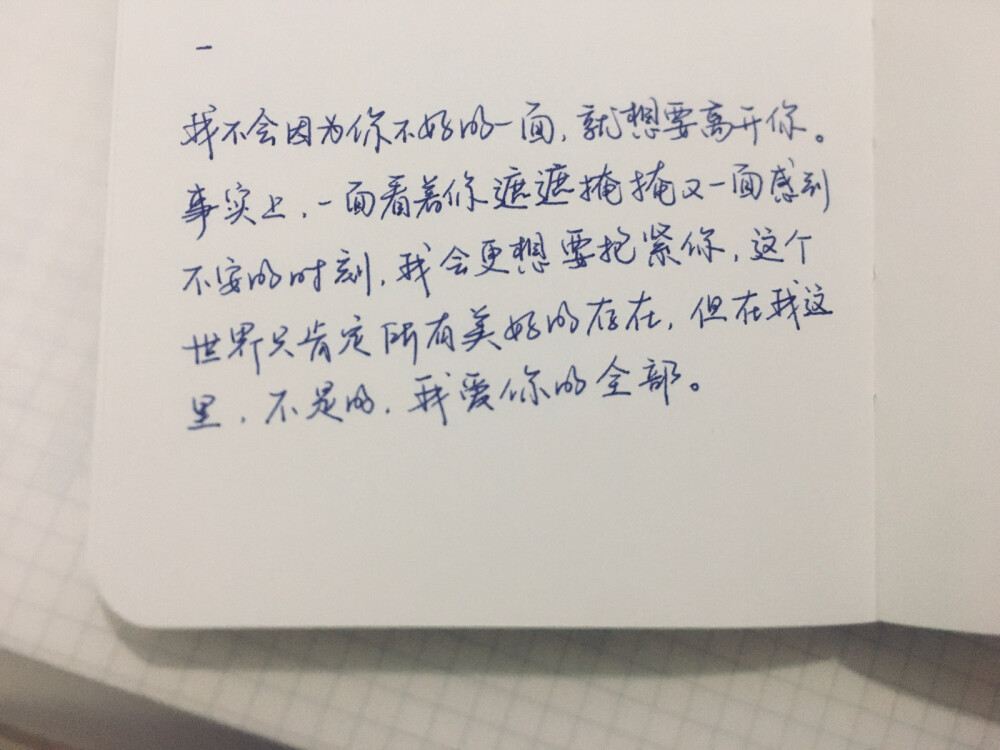 一
我不会因为你不好的一面,就想要离开你。
事实上,一面看着你遮遮掩掩又一面感到
不安的时刻,我会更想要抱紧你,这个
世界只肯定所有美好的存在,但在我这
里,不是的,我爱你的全部。